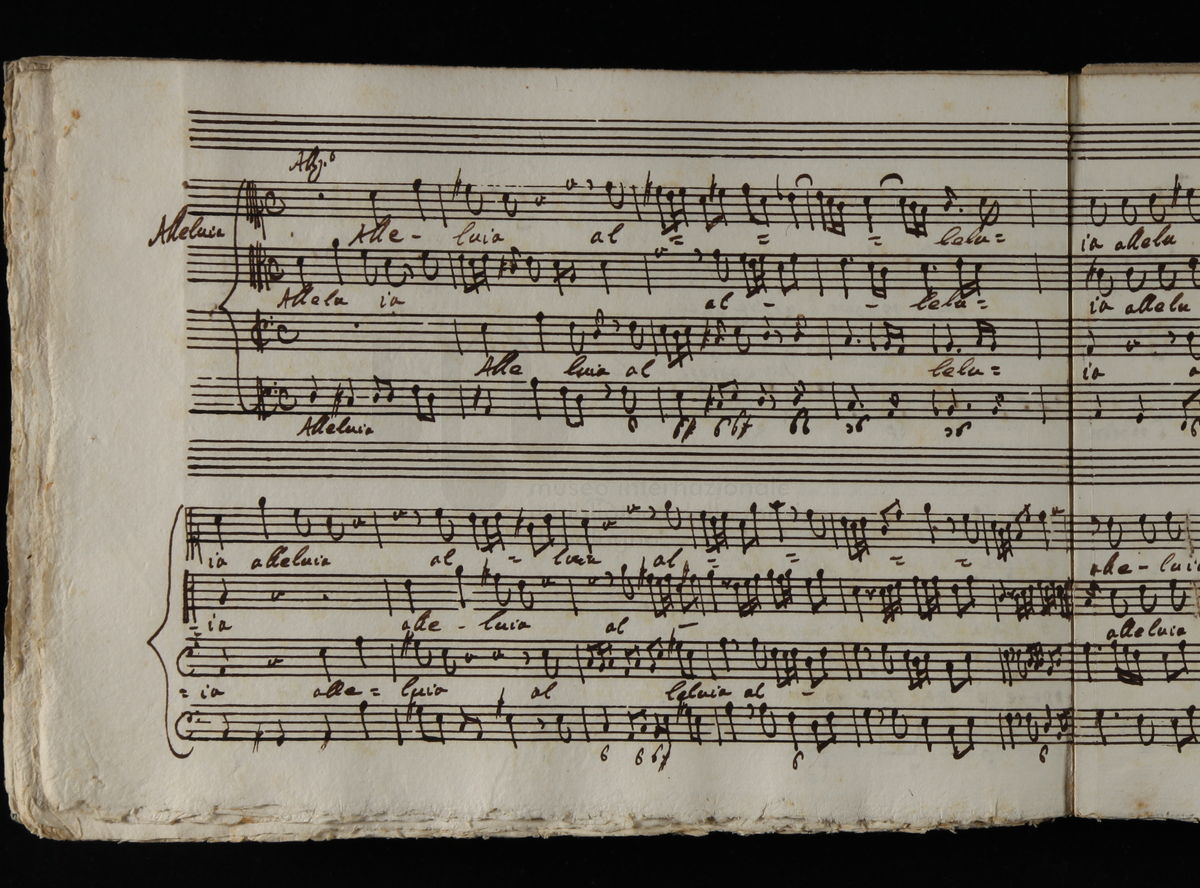 All.º
Alleluia
Alle - luia al = = = lelu= ia allelu
Allelu ia al - - lelu= ia allelu
Alle luia al lelu= ia a
Alleluia
6 6 6 6 6 6 6 6
museo internazionale
ia alleluia al = luia al = = = = alle-luia
-ia alle-luia al - alleluia
= ia alle= luia al leluia al -
6 6 6 6 6